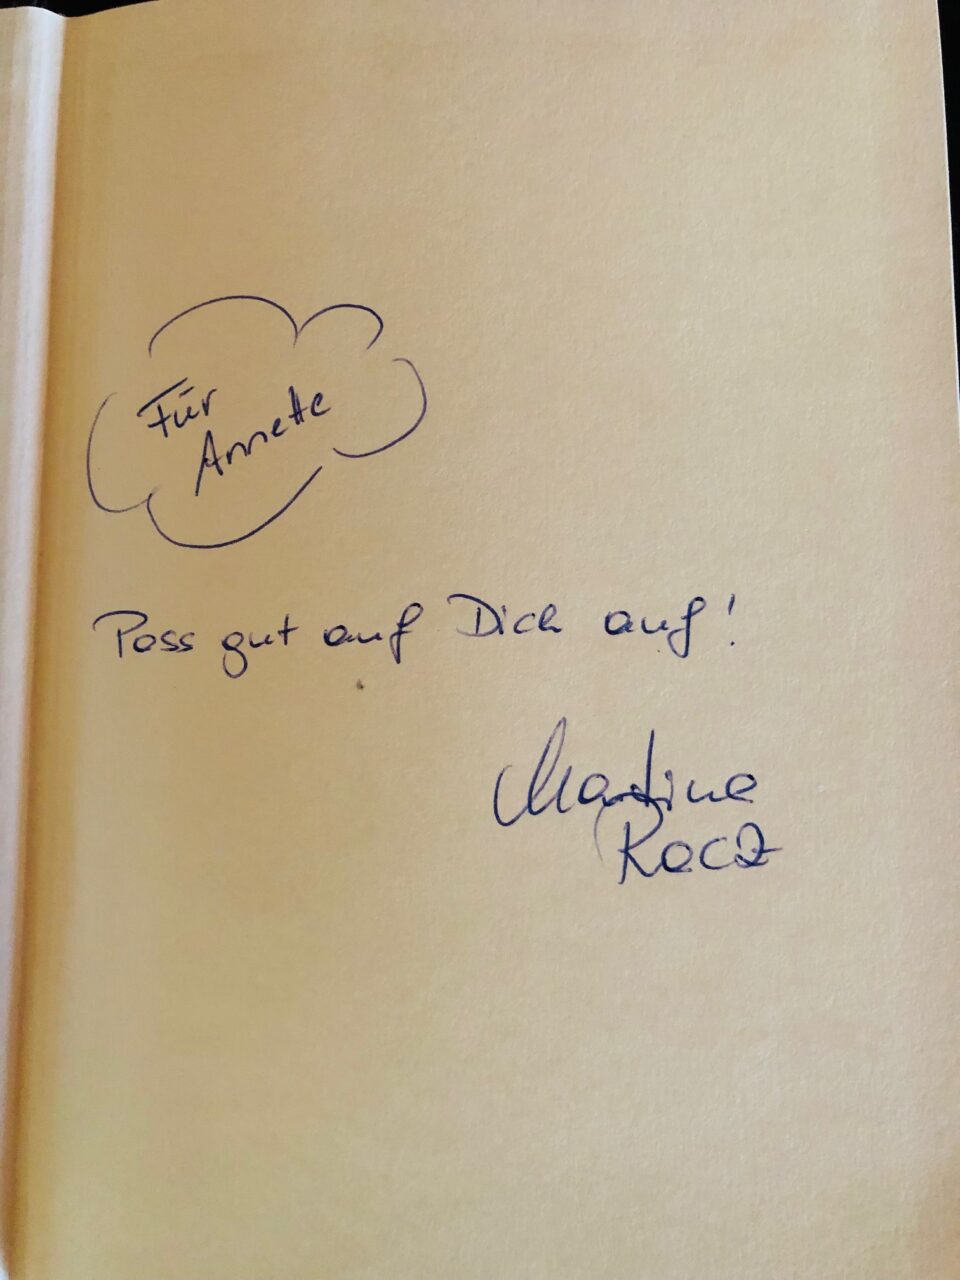 Für
Annette
Pass gut auf Dich auf!
Martina
Racz